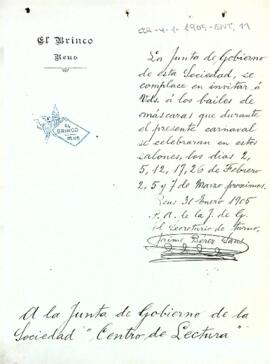 El Brinco
Reus
CCR-4-1-1905-ENT, 11
La Junta de Gobierno
de esta Sociedad, se
complace en invitar á
Vds. á los bailes de
máscaras que durante
el presente carnaval
se celebraran en estos
salones, los dias 2,
5, 12, 17, 26 de Febrero
2, 5 y 7 de Marzo proximos.
Reus 31 Enero 1905
P. A. de la J. de G.
el Secretario de turno,
Jaime
EL
BRINCO
REUS
A la Junta de Gobierno de la
Sociedad "Centro de Lectura"